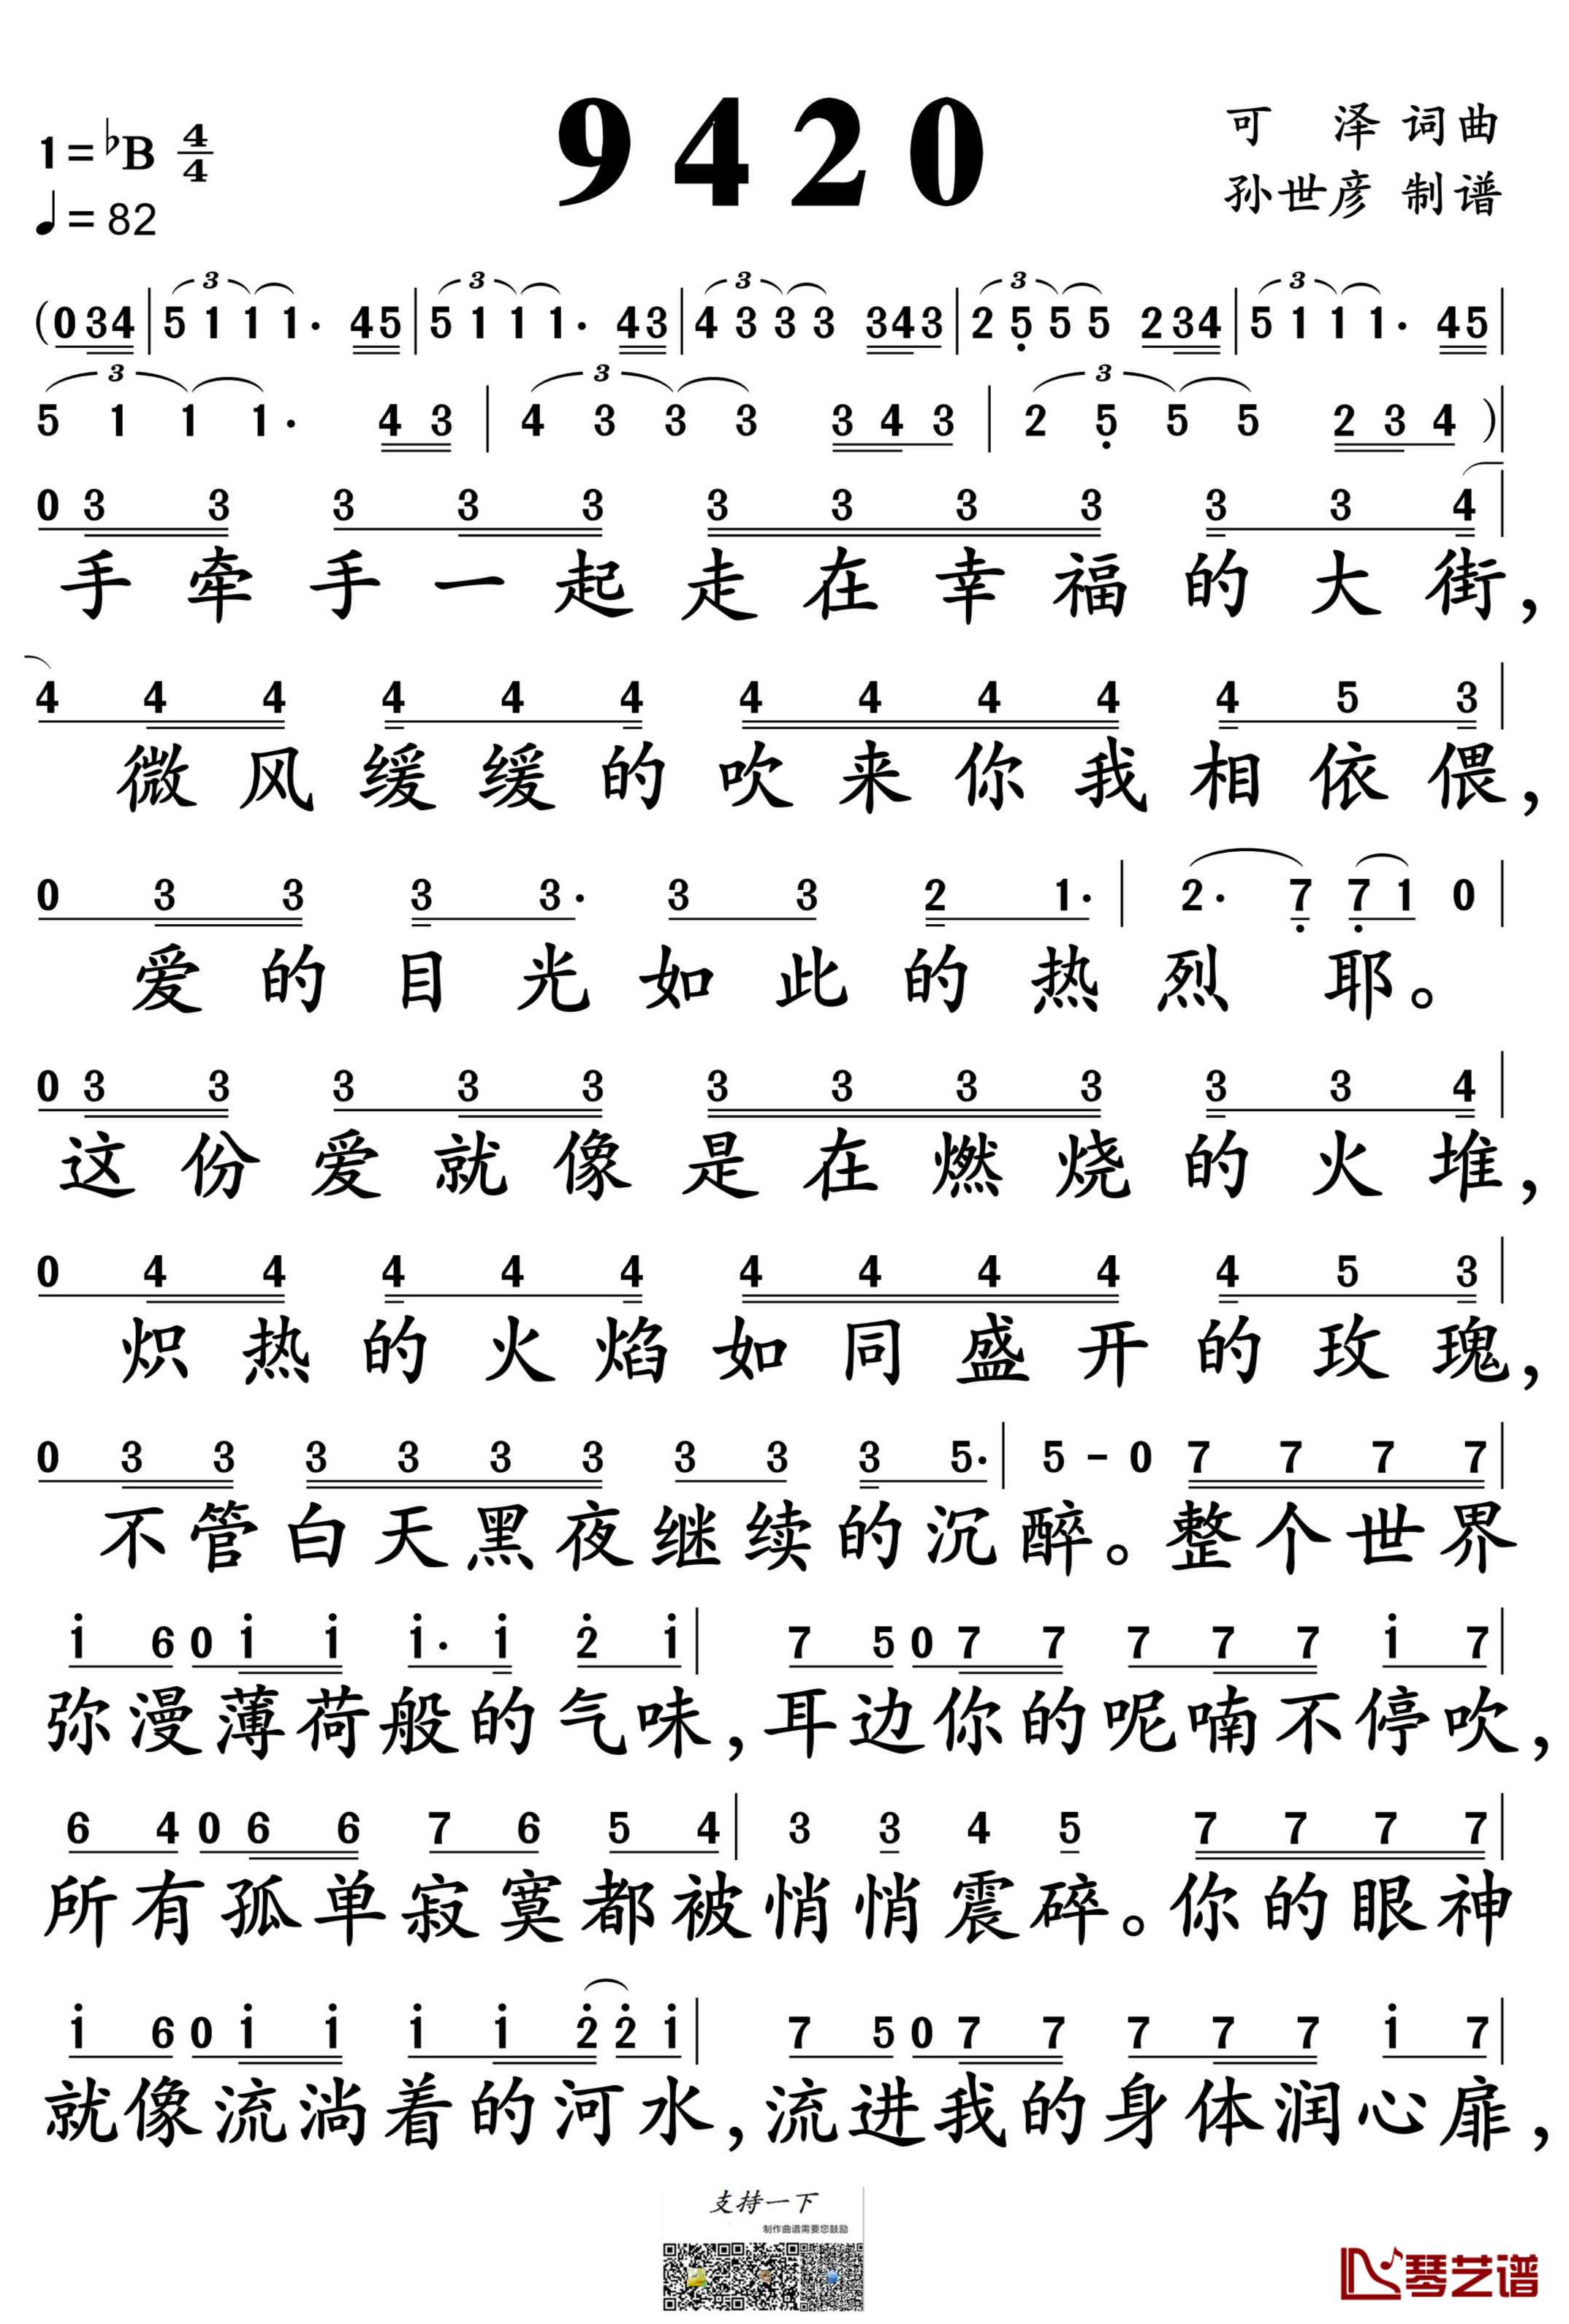 9420
可 泽 词曲
1=♭B 4/4
孙世彦 制谱
♩=82
(034|5111. 45|5111. 43|4333 343|2555 234|5111. 45|
5 1 1 1. 4 3|4 3 3 3 3 4 3|2 5 5 5 2 3 4)|
0 3 3 3 3 3 3 3 3 3 3 3 4|
手牵手一起走在幸福的大街，
4 4 4 4 4 4 4 4 4 4 4 5 3|
微风缓缓的吹来你我相依偎，
0 3 3 3 3. 3 3 2 1.|2. 7 7 1 0|
爱的目光如此的热烈 耶。
0 3 3 3 3 3 3 3 3 3 3 3 4|
这份爱就像是在燃烧的火堆，
0 4 4 4 4 4 4 4 4 4 4 5 3|
炽热的火焰如同盛开的玫瑰，
0 3 3 3 3 3 3 3 3 3 5.|5 - 0 7 7 7 7|
不管白天黑夜继续的沉醉。整个世界
1 6 0 1 1 1. 1 2 1|7 5 0 7 7 7 7 7 1 7|
弥漫薄荷般的气味，耳边你的呢喃不停吹，
6 4 0 6 6 7 6 5 4|3 3 4 5 7 7 7 7|
所有孤单寂寞都被悄悄震碎。你的眼神
1 6 0 1 1 1 1 2 2 1|7 5 0 7 7 7 7 7 1 7|
就像流淌着的河水，流进我的身体润心扉，
支持一下
制作曲谱需要您鼓励
琴艺谱